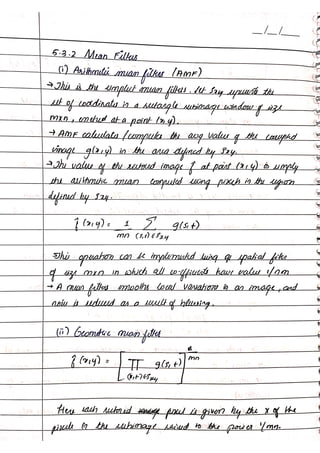 __/__/__
5.3.2 Mean Filters
(i) Arithmetic mean filter (AMF)
→ This is the simplest mean filter. Let Sxy represents the
set of coordinates in a rectangle subimage window of size
mxn, centred at a point (x,y).
→ AMF calculates/computes the avg value of the corrupted
image g(x,y) in the area defined by Sxy.
→ The value of the restored image f at point (x,y) is simply
the arithmetic mean computed using pixels in the region
defined by Sxy.
f̂(x,y) = 1/mn Σ (s,t)∈Sxy g(s,t)
This operation can be implemented using a spatial filter
of size mxn in which all co-efficients have value 1/mn
→ A mean filters smooths local variations in an image, and
noise is reduced as a result of blurring.
(ii) Geometric mean filter
f̂(x,y) = [ Π (s,t)∈Sxy g(s,t) ] 1/mn
Here each restored pixel is given by the x of the
pixels in the subimage raised to the power 1/mn.